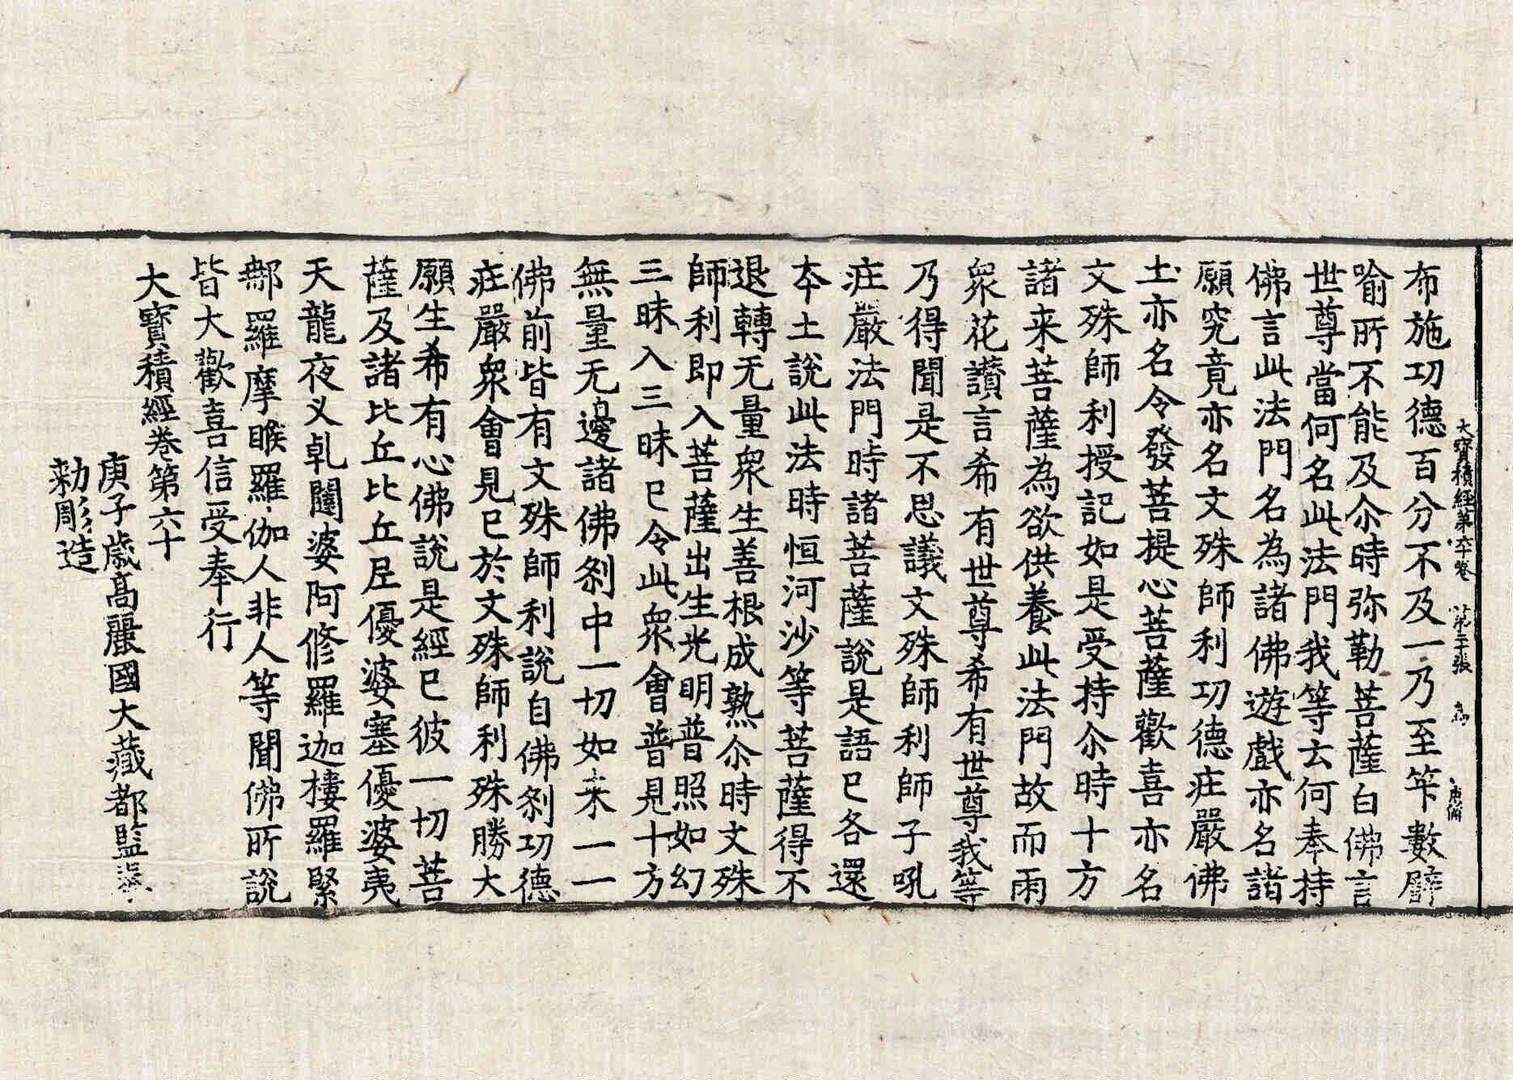 大寶積經第六十卷 第二十張 鳥
布施功德百分不及一乃至筭數譬
喻所不能及尒時弥勒菩薩白佛言
世尊當何名此法門我等云何奉持
佛言此法門名為諸佛遊戲亦名諸
願究竟亦名文殊師利功德莊嚴佛
土亦名令發菩提心菩薩歡喜亦名
文殊師利授記如是受持尒時十方
諸来菩薩為欲供養此法門故而雨
衆花讃言希有世尊希有世尊我等
乃得聞是不思議文殊師利師子吼
莊嚴法門時諸菩薩說是語已各還
本土說此法時恒河沙等菩薩得不
退轉无量衆生善根成熟尒時文殊
師利即入菩薩出生光明普照如幻
三昧入三昧已令此衆會普見十方
無量无邊諸佛刹中一切如来一一
佛前皆有文殊師利說自佛刹功德
莊嚴衆會見已於文殊師利殊勝大
願生希有心佛說是經已彼一切菩
薩及諸比丘比丘尼優婆塞優婆夷
天龍夜叉乹闥婆阿修羅迦樓羅緊
那羅摩睺羅伽人非人等聞佛所說
皆大歡喜信受奉行
大寶積經卷第六十
庚子歳高麗國大藏都監奉
勑彫造